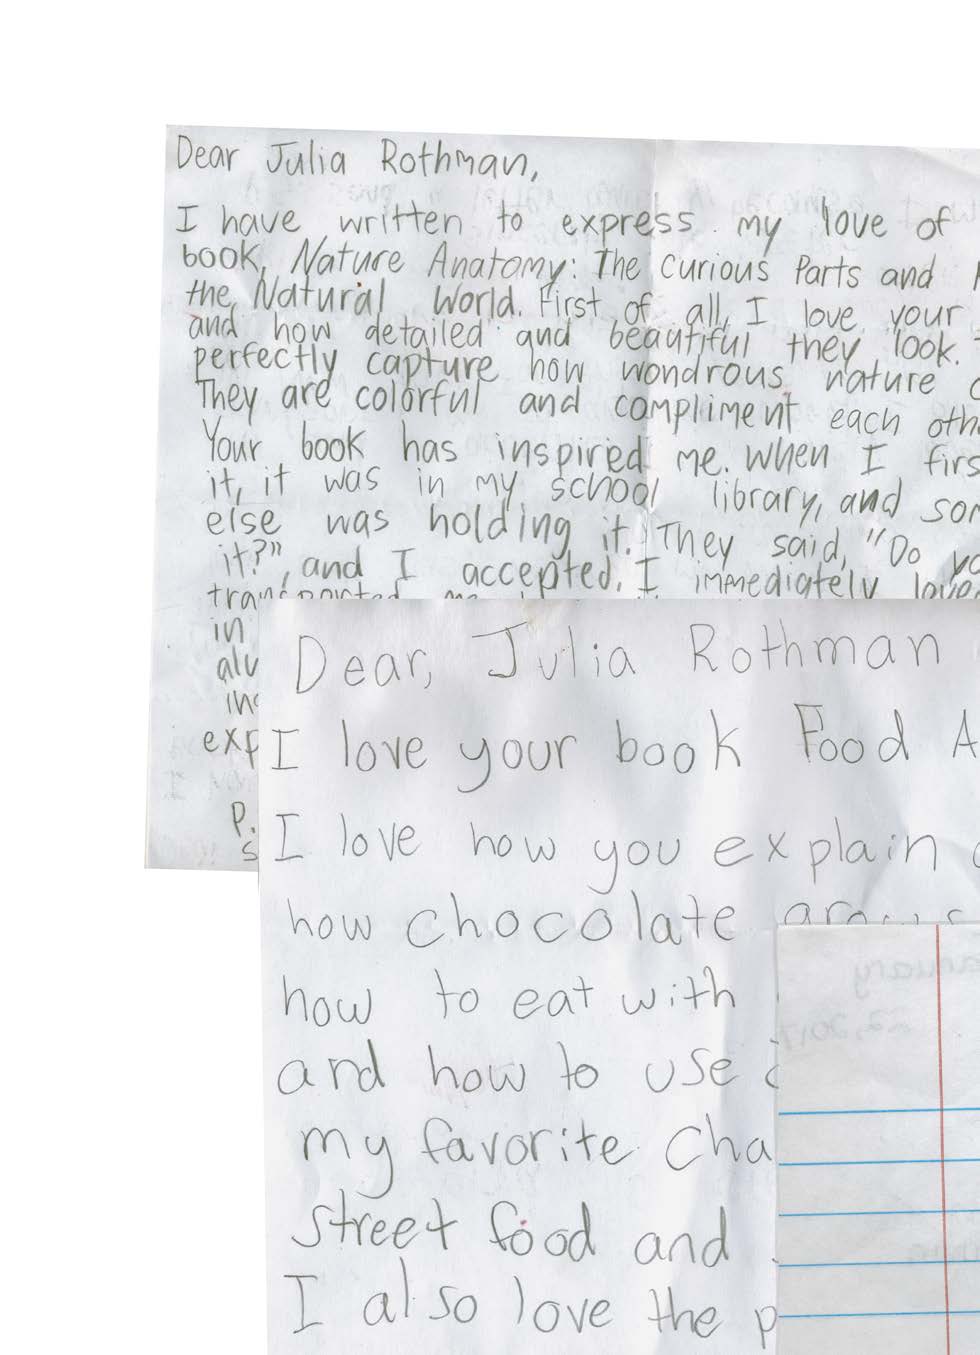 Dear Julia Rothman,
I have written to express my love of
book, Nature Anatomy: The Curious Parts and
the Natural World. First of all, I love your
and how detailed and beautiful they look.
perfectly capture how wondrous nature
They are colorful and compliment each
Your book has inspired me. When I
it, it was in my school library, and
else was holding it. They said, "Do
it?", and I accepted. I immediately
in
P.
Dear, Julia Rothman
I love your book Food
I love how you explain
how chocolate grows
how to eat with
and how to use
my favorite
street food and
I also love the